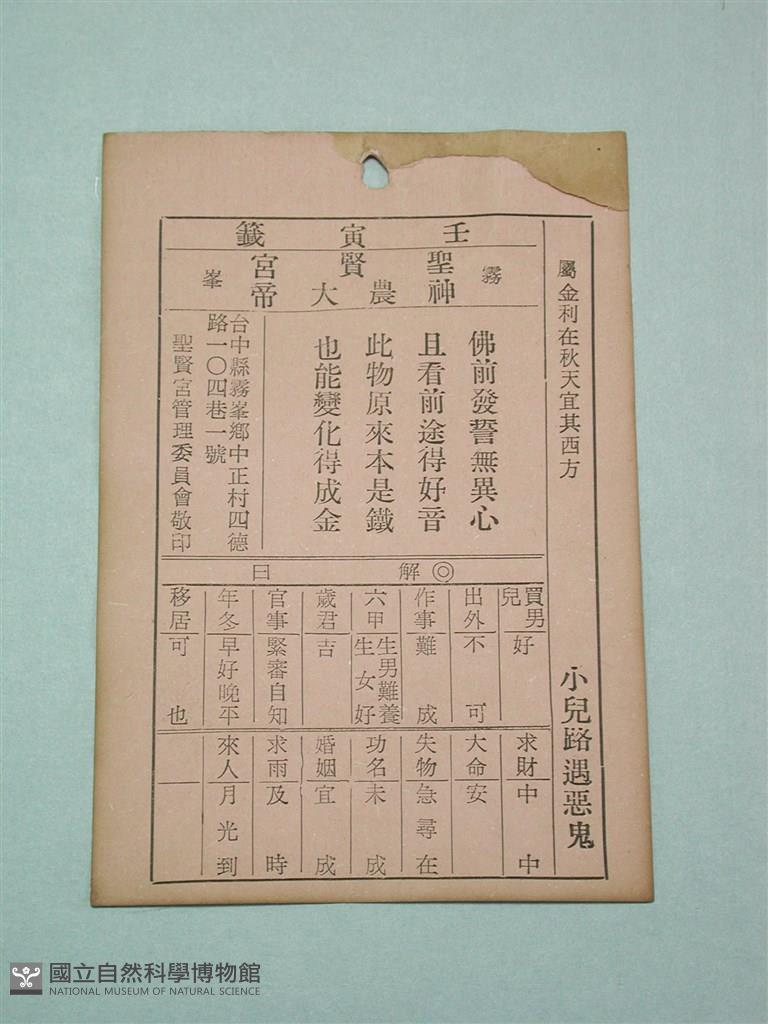 屬金利在秋天宜其西方
小兒路遇惡鬼
壬寅籤
霧峯
聖賢宮
神農大帝
佛前發誓無異心
且看前途得好音
此物原來本是鐵
也能變化得成金
台中縣霧峯鄉中正村四德
路一〇四巷一號
聖賢宮管理委員會敬印
◎解曰
買男兒 好
出外 不可
作事 難成
六甲 生男難養 生女好
歲君 吉
官事 緊審自知
年冬 早好晚平
移居 可也
求財 中中
大命 安
失物 急尋在
功名 未成
婚姻 宜成
求雨 及時
來人 月光到
國立自然科學博物館
NATIONAL MUSEUM OF NATURAL SCIENCE